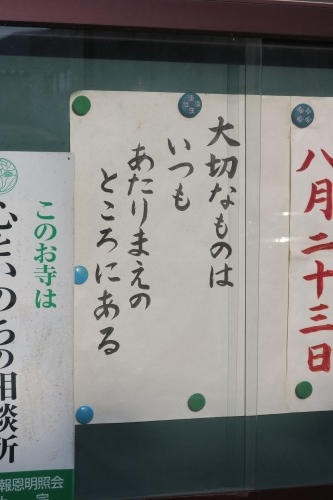 八月二十三日
大切なものは
いつも
あたりまえの
ところにある
このお寺は
心といのちの相談所
報恩明照会